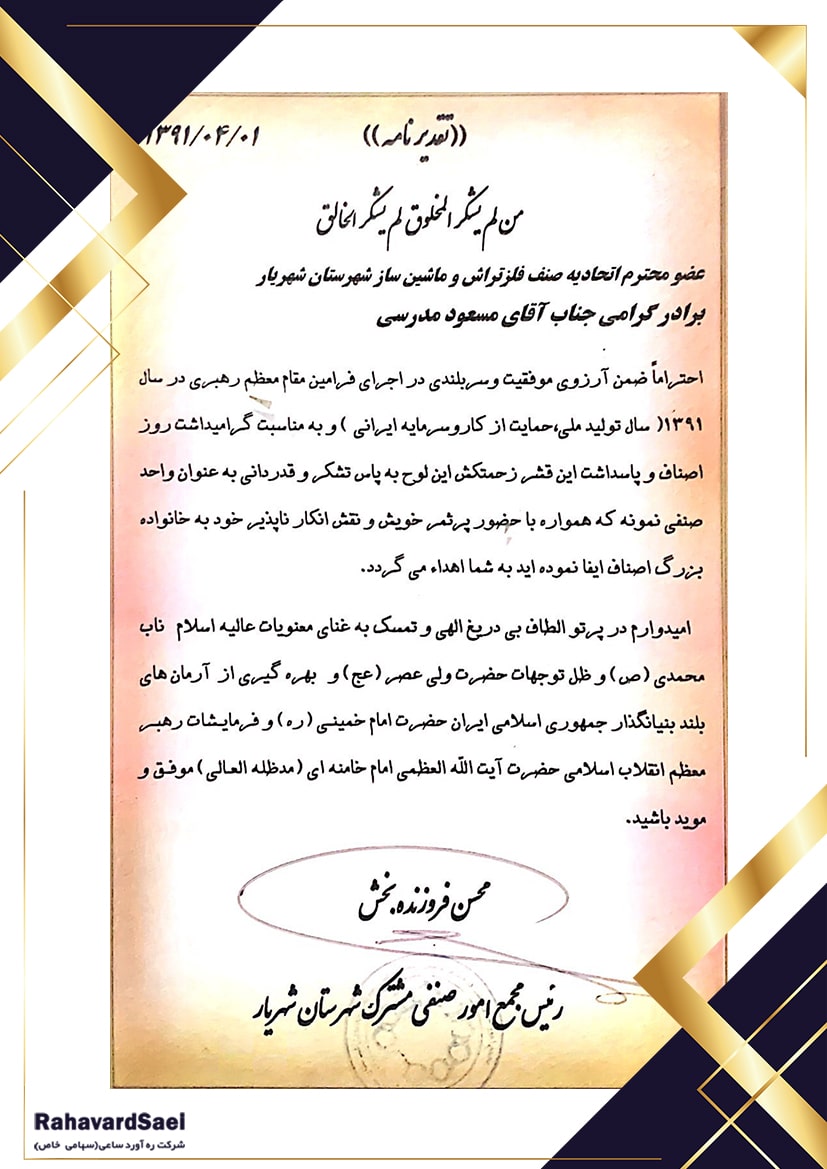 ((تقدیر نامه))
۱۳۹۱/۰۴/۰۱
من لم یشکر المخلوق لم یشکر الخالق
عضو محترم اتحادیه صنف فلزتراش و ماشین ساز شهرستان شهریار
برادر گرامی جناب آقای مسعود مدرسی
احتراماً ضمن آرزوی موفقیت وسربلندی در اجرای فرامین مقام معظم رهبری در سال
۱۳۹۱( سال تولید ملی،حمایت از کاروسرمایه ایرانی ) و به مناسبت گرامیداشت روز
اصناف و پاسداشت این قشر زحمتکش این لوح به پاس تشکر و قدردانی به عنوان واحد
صنفی نمونه که همواره با حضور پرثمر خویش و نقش انکار ناپذیر خود به خانواده
بزرگ اصناف ایفا نموده اید به شما اهداء می گردد.
امیدوارم در پرتو الطاف بی دریغ الهی و تمسک به غنای معنویات عالیه اسلام ناب
محمدی (ص) و ظل توجهات حضرت ولی عصر (عج) و بهره گیری از آرمان های
بلند بنیانگذار جمهوری اسلامی ایران حضرت امام خمینی (ره) و فرمایشات رهبر
معظم انقلاب اسلامی حضرت آیت الله العظمی امام خامنه ای (مدظله العالی) موفق و
موید باشید.
محسن فروزنده بخش
رئیس مجمع امور صنفی مشترک شهرستان شهریار
RahavardSaei
شرکت ره آورد ساعی(سهامی خاص)